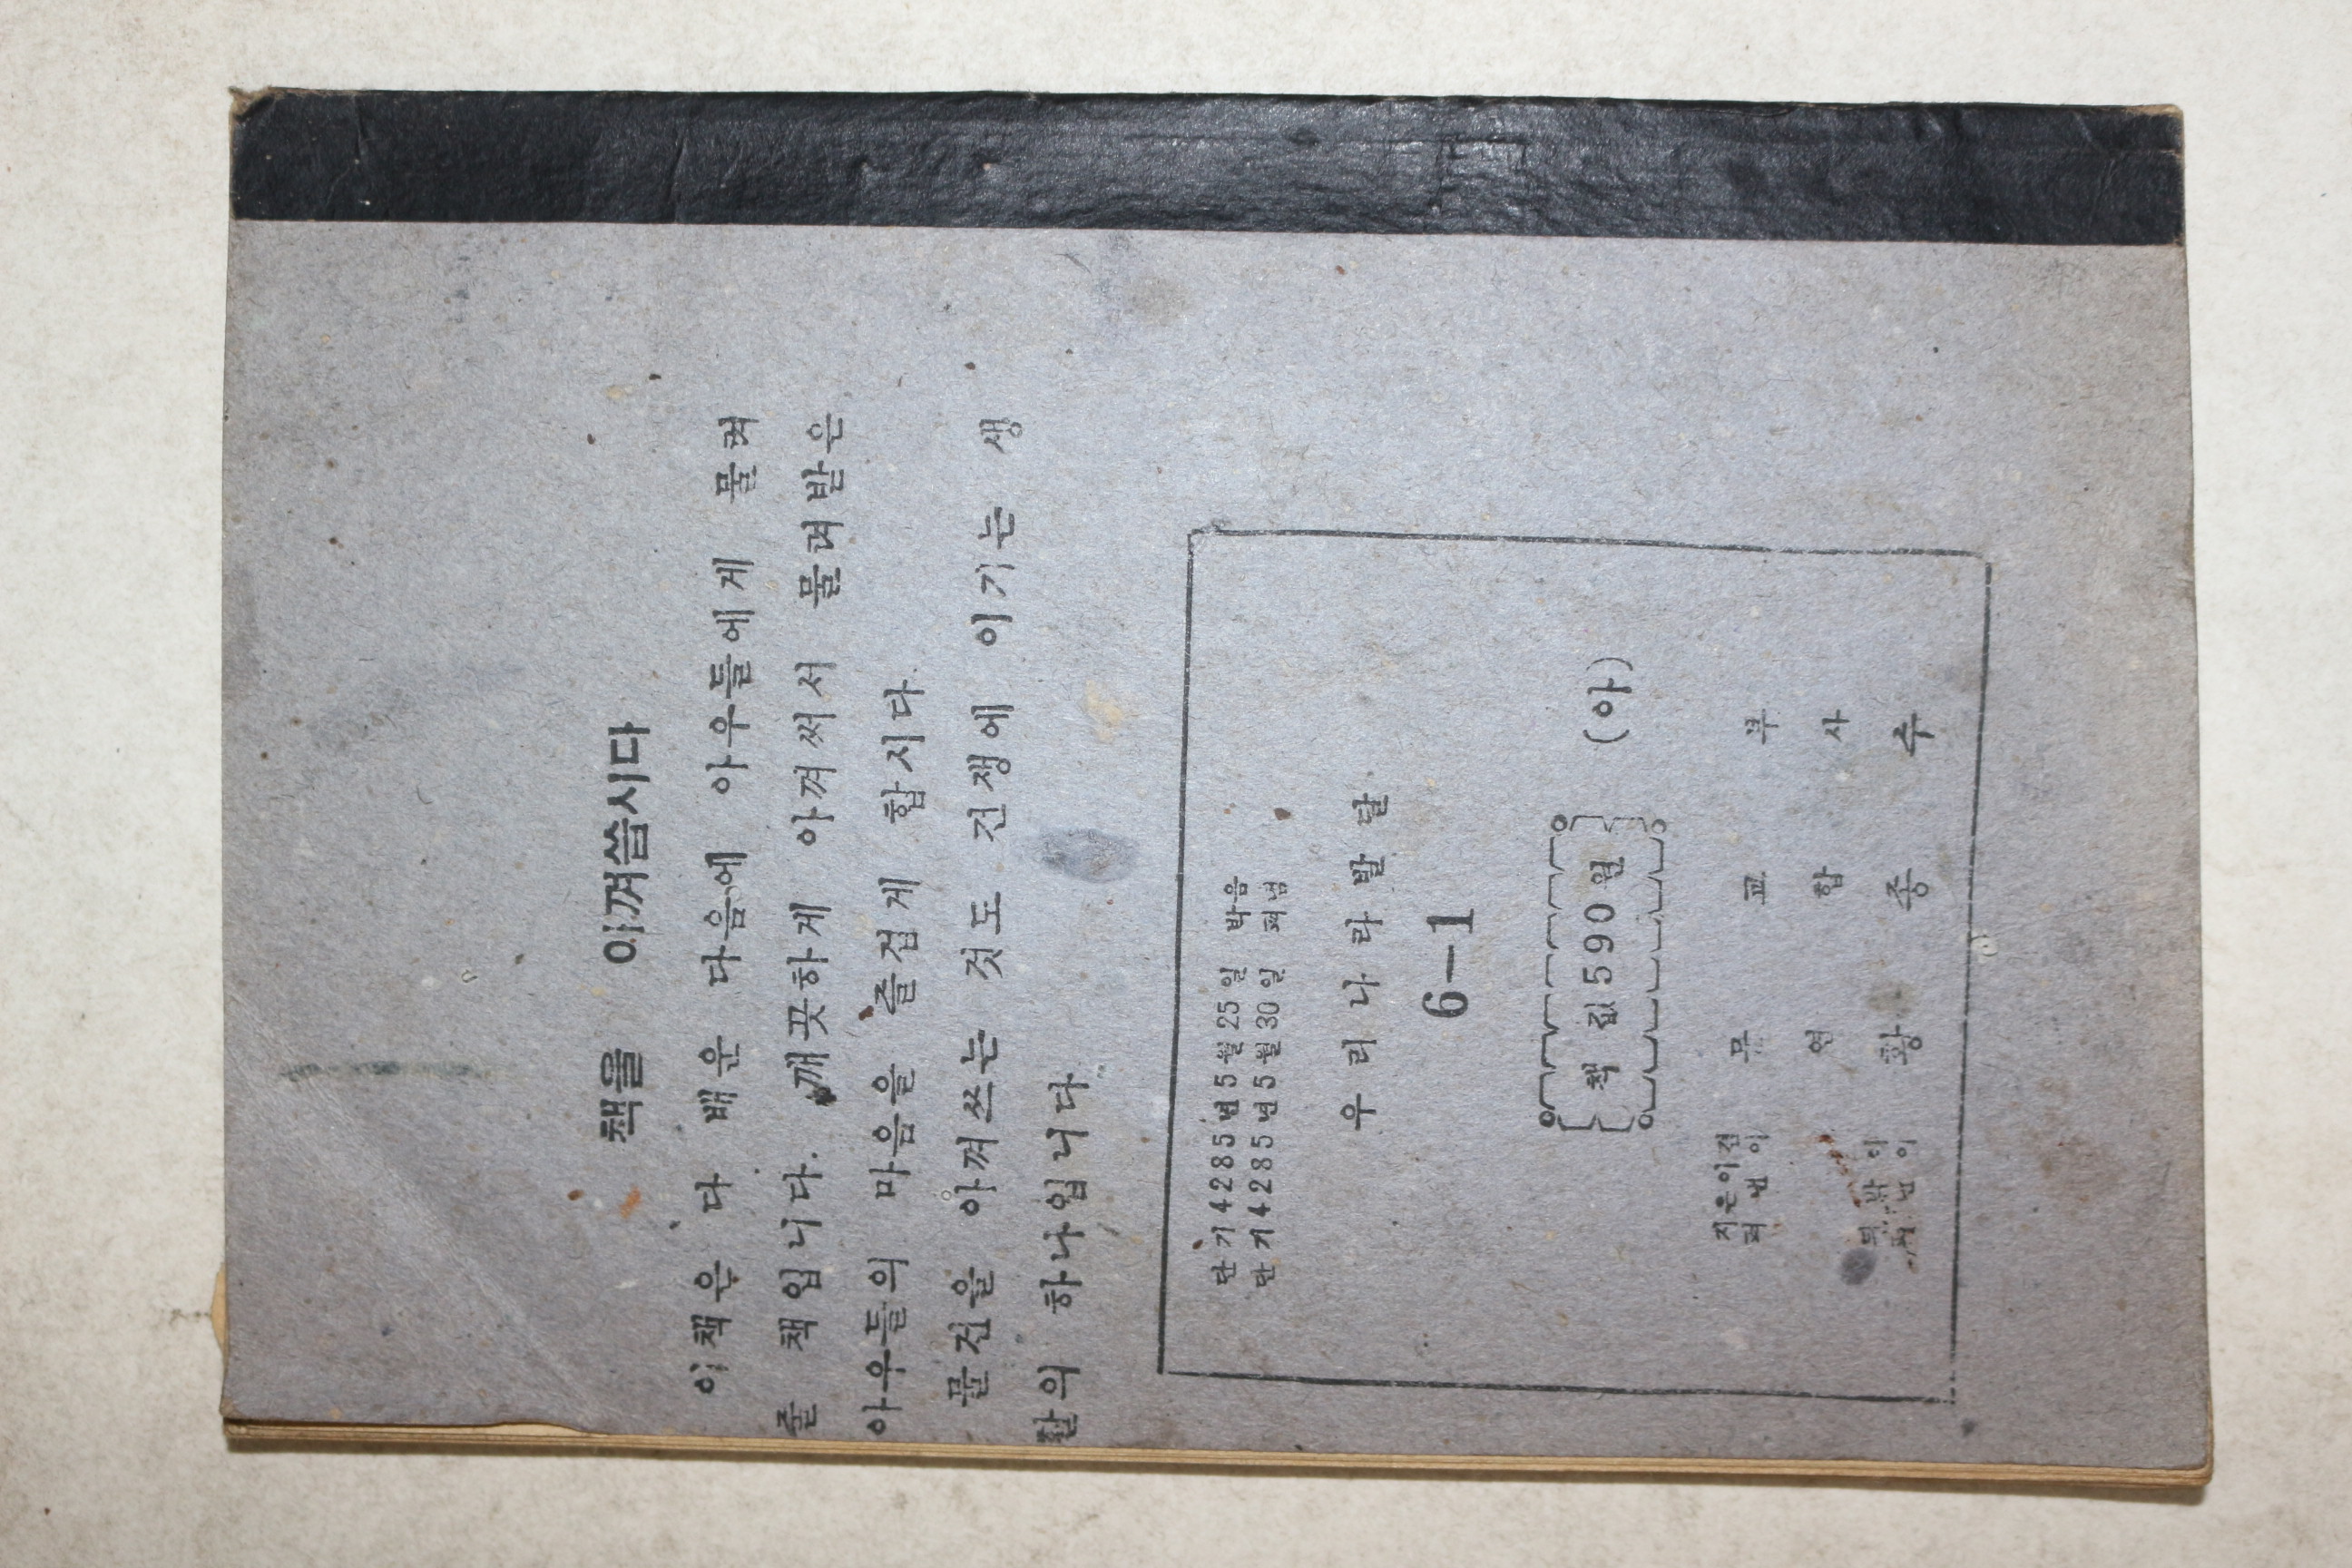 책을 아껴씁시다
이책은 다 배운 다음에 아우들에게 물려
줄 책입니다. 깨끗하게 아껴써서 물려받은
아우들의 마음을 즐겁게 합시다.
물건을 아껴쓰는 것도 전쟁에 이기는 생
활의 하나입니다
단기 4285년 5월 25일 박음
단기 4285년 5월 30일 펴냄
우리나라발달
6—1
책값 590원
(아)
지은이겸
펴낸이
문 교 부
연 합 사
박이
이
황 종 수